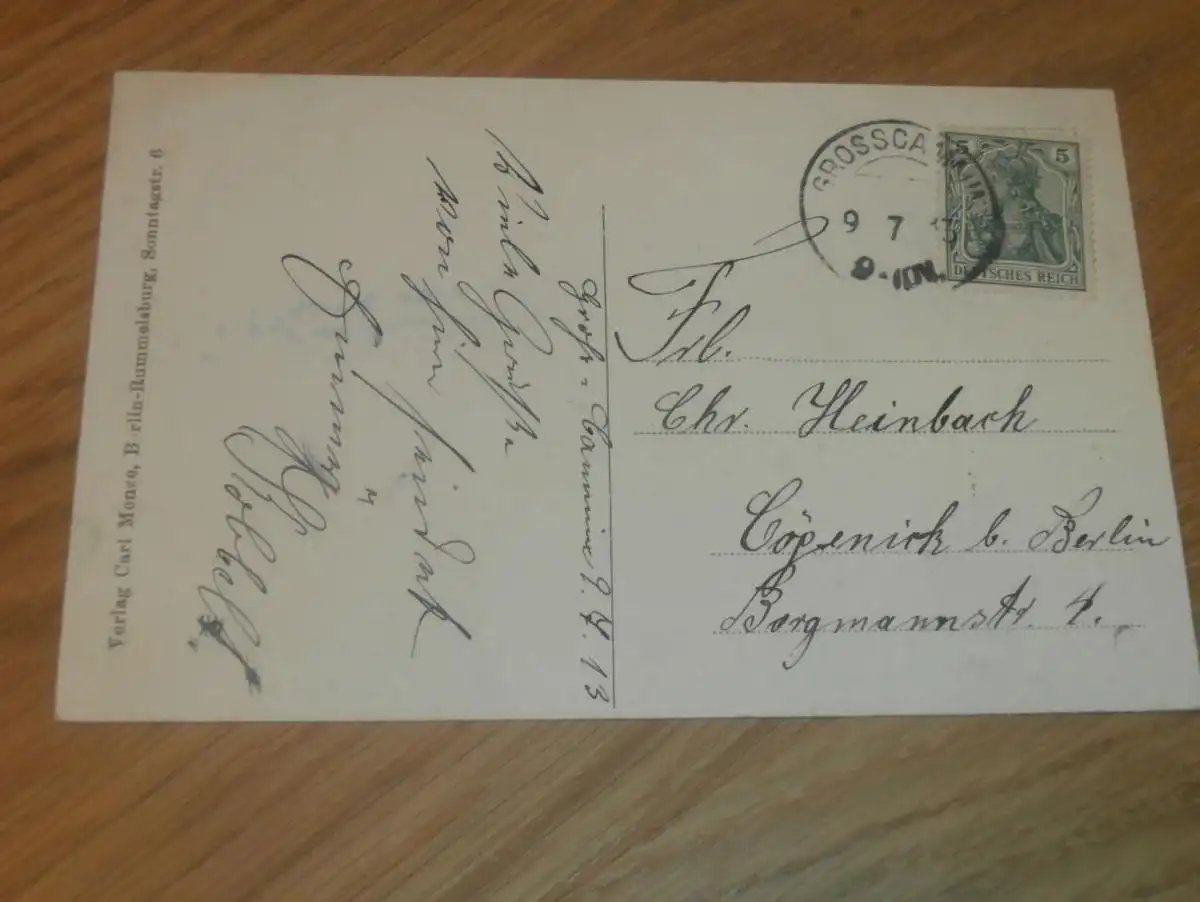 Verlag Carl Monze, Berlin-Rummelsburg, Sonntagstr. 6
Groß-Cammin 9. 7. 13
Viele Grüße
von hier sendet
GROSSCA
9 7 13
5 5
DEUTSCHES REICH
Frl.
Chr. Heinbach
Cöpenick b. Berlin
Borgmannstr. 4.